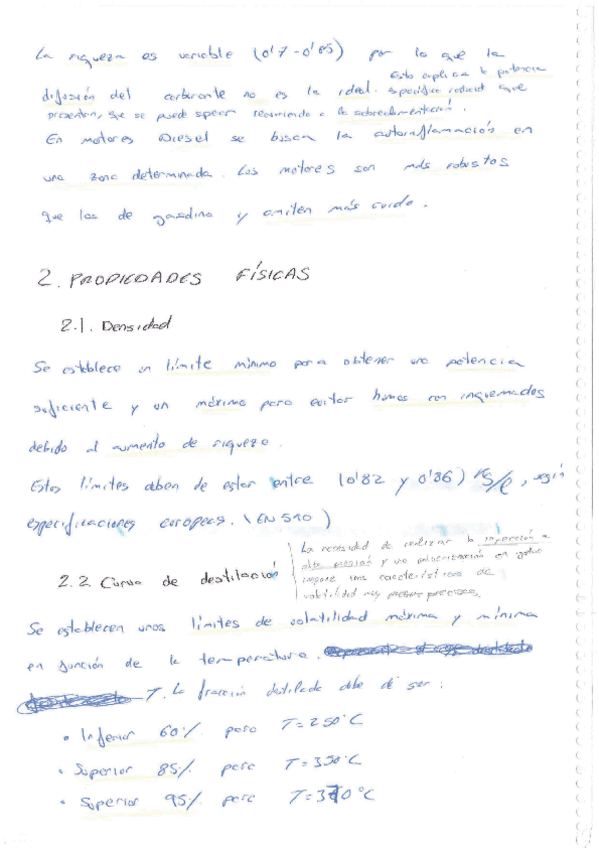 La riqueza es variable (0'7-0'85) por lo que la
difusión del carburante no es la ideal. Esto explica la potencia
específica reducida que
presentan, que se puede superar recurriendo a la sobrealimentación.
En motores Diesel se busca la autoinflamación en
una zona determinada. Los motores son más robustos
que los de gasolina y emiten más ruido.
2. PROPIEDADES FÍSICAS
2.1. Densidad
Se establece un límite mínimo para obtener una potencia
suficiente y un máximo para evitar humos con inquemados
debido al aumento de riqueza.
Estos límites deben de estar entre (0'82 y 0'86) kg/l, según
especificaciones europeas. (EN 590)
2.2 Curva de destilación
La necesidad de realizar la inyección a
alta presión y una pulverización en gotas
impone unas características de
volatilidad muy precisas.
Se establecen unos límites de volatilidad máxima y mínima
en función de la temperatura.
T. La fracción destilada debe de ser:
• Inferior 60% para T=250°C
• Superior 85% para T=350°C
• Superior 95% para T=370°C